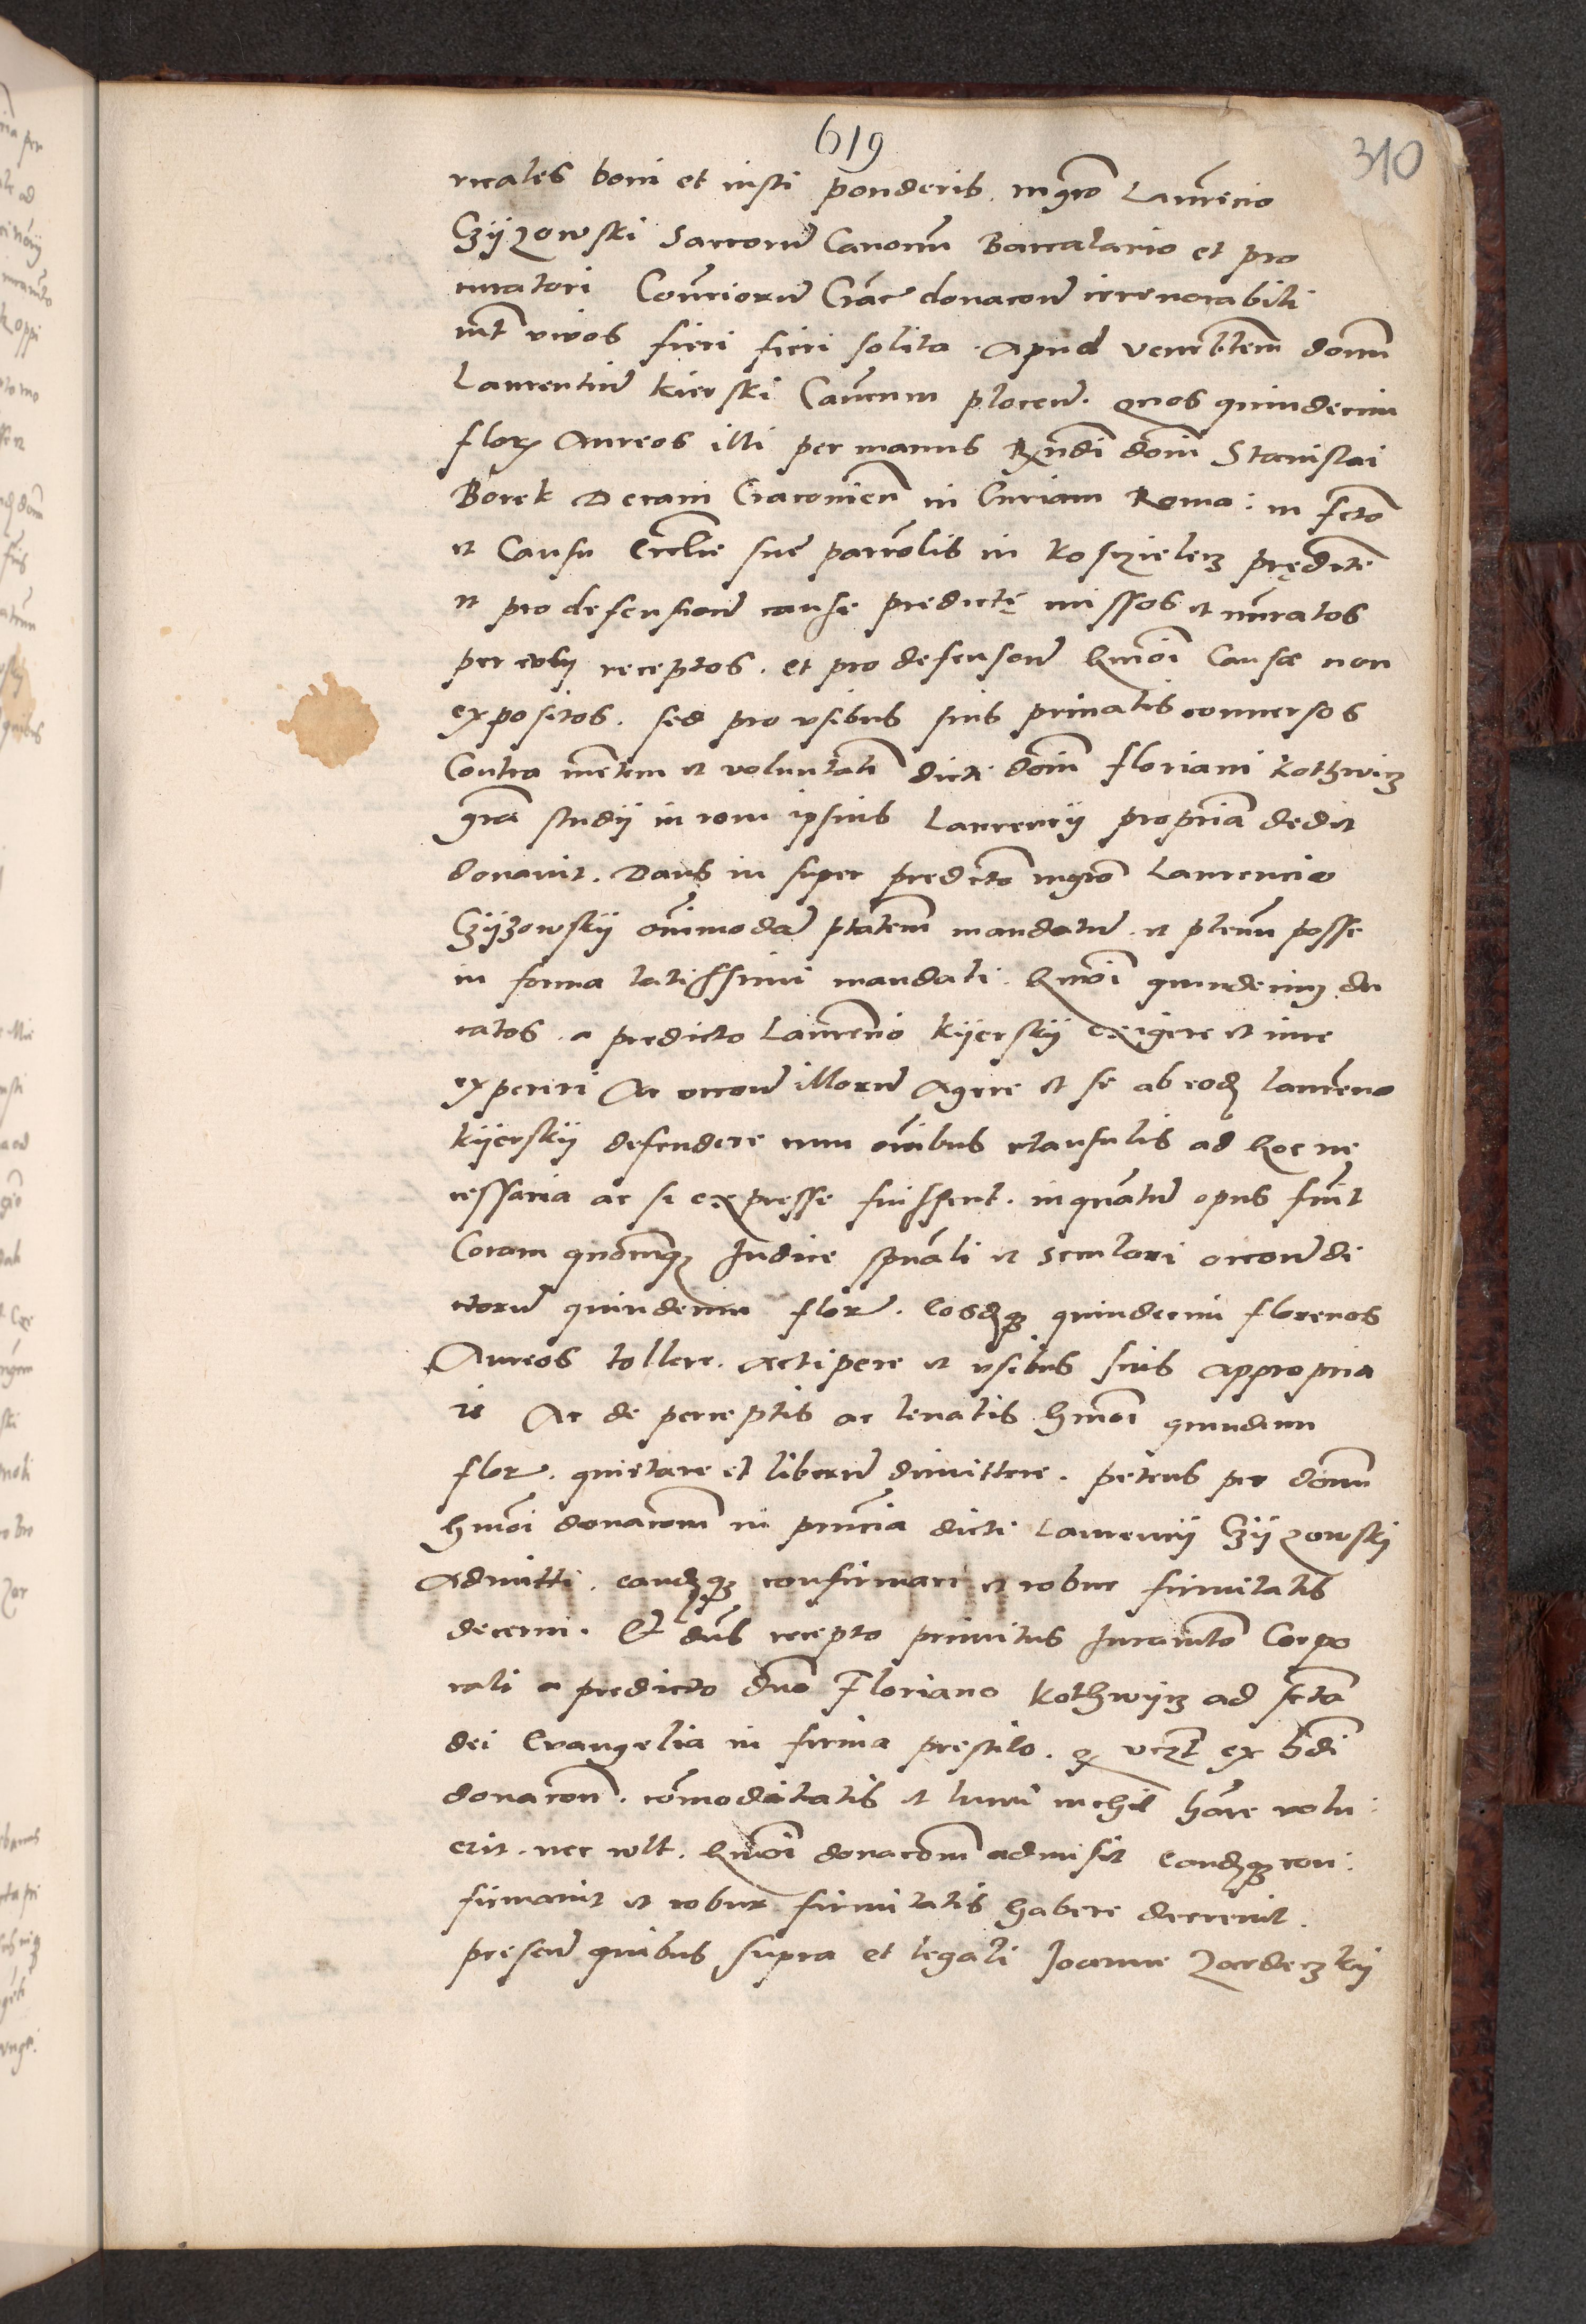 619
310
ricales boni et iusti ponderis. mgro Laurencio
Czÿzowski Sacrorum Canonum Baccalario et pro
curatori Consistoriorum Crac donacone irrevocabili
inter vivos fieri fieri solita. Apud venerabilem domn
Laurentium kierski Canonicum plocen. quos quindecim
flor Aureos illi per manus Rndi domi Stanislai
Borek Decani Cracovien in Curiam Roma: in fcto
et Causa Ecclie sue parrolis in Kosczielecz predicte
et pro defensione cause predicte missos et numeratos
per receptos. et pro defensione huiusmodi Causae non
expositos. sed pro vsibus suis privatis conversos
Contra mentem et voluntate dicti domi floriani kothwicz
gra studii in rom ipsius Laurencÿ propria dedit
donavit. Dans in super predicto mgro Laurencio
Czÿzowskÿ omimoda ptatem mandatum et plenum posse
in forma latissimi mandati. huiusmodi quindecim du
catos. a predicto Laurencio kÿerskÿ exigere et iure
experiri Ac accone illorum Agere et se ab eod Laurencio
kÿerskÿ defendere cum omibus clausulis ad hoc ne
cessaria ac si expresse fuissent. inquantum opus fuerit
Coram quocunque Iudice spuali et seculari accone di
ctorum quindecim flor. Eosdque quindecim florenos
Aureos tollere. Actipere et vsibus suis appropria
re Ac de perceptis ac levatis hmoi quindecim
flor. quietare et liberum dimittere. petens per domn
hmoi donaconem in pncia dicti Laurencÿ Czÿzowskÿ
Admitti. eandque confirmare et robur firmitatis
decerni. Et dns recepto primitus Iuramto Corpo
rali a predicto dno Floriano kothwÿcz ad scta
dei Evangelia in forma prestito. q ex
donacone. comoditatis et lucri nichil hare volu:
erit. nec vult. huiusmodi donaconem admisit Eandque con:
firmavit et robur firmitatis habere decrevit.
presen quibus supra et legali Joanne Zardeczkÿ